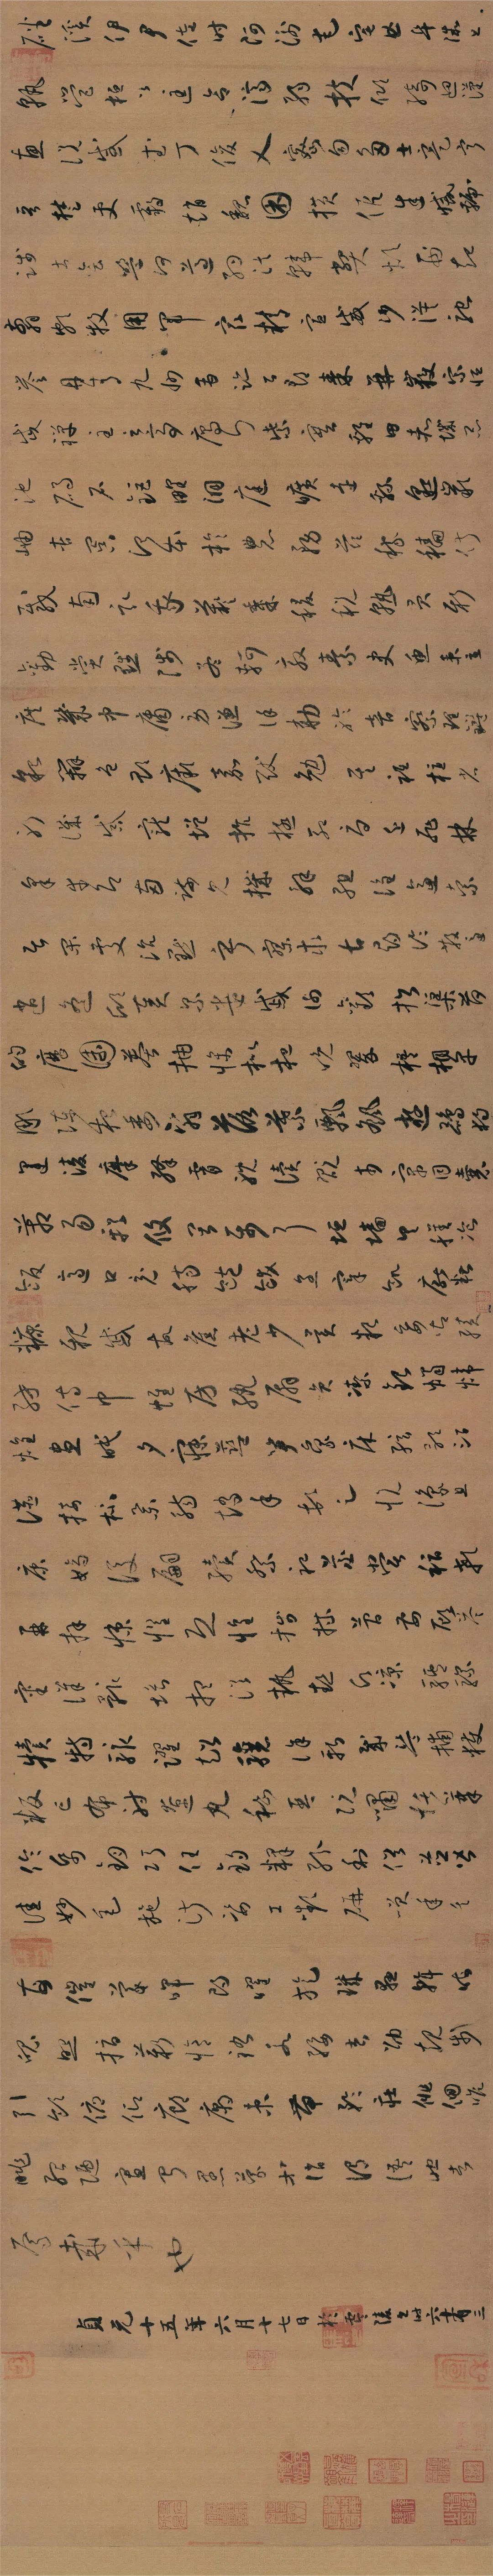 磻溪伊尹佐時阿衡奄宅曲阜微旦
孰營桓公匡合濟弱扶傾綺迴漢
惠說感武丁俊乂密勿多士寔寧
晉楚更霸趙魏困橫假途滅虢
踐土會盟何遵約法韓弊煩刑起
翦頗牧用軍最精宣威沙漠馳
譽丹青九州禹跡百郡秦并嶽宗恒
岱禪主云亭雁門紫塞雞田赤城昆
池碣石鉅野洞庭曠遠綿邈巖
岫杳冥治本於農務茲稼穡俶
載南畝我藝黍稷稅熟貢新
勸賞黜陟孟軻敦素史魚秉直
庶幾中庸勞謙謹敕聆音察理鑒
貌辨色貽厥嘉猷勉其祗植省
躬譏誡寵增抗極殆辱近恥林
皋幸即兩疏見機解組誰逼索
居閑處沉默寂寥求古尋論散慮
逍遙欣奏累遣慼謝歡招渠荷
的歷園莽抽條枇杷晚翠梧桐早
凋陳根委翳落葉飄颻遊鵾獨
運凌摩絳霄耽讀翫市寓目囊
箱易輶攸畏屬耳垣牆具膳飡
飯適口充腸飽飫烹宰飢厭糟
糠親戚故舊老少異糧妾御績
紡侍巾帷房紈扇圓潔銀燭煒
煌晝眠夕寐藍笋象床弦歌酒
讌接杯舉觴矯手頓足悅豫且
康嫡後嗣續祭祀蒸嘗稽顙
再拜悚懼恐惶牋牒簡要顧答
審詳骸垢想浴執熱願涼驢騾
犢特駭躍超驤誅斬賊盜捕獲
叛亡布射遼丸嵇琴阮嘯恬筆
倫紙鈞巧任釣釋紛利俗並皆
佳妙毛施淑姿工顰妍笑年矢
每催羲暉朗曜璇璣懸斡晦
魄環照指薪修祜永綏吉劭矩步
引領俯仰廊廟束帶矜莊徘徊瞻
眺孤陋寡聞愚蒙等誚謂語助者
焉哉乎也
貞元十五年六月十七日於零陵書時六十有三